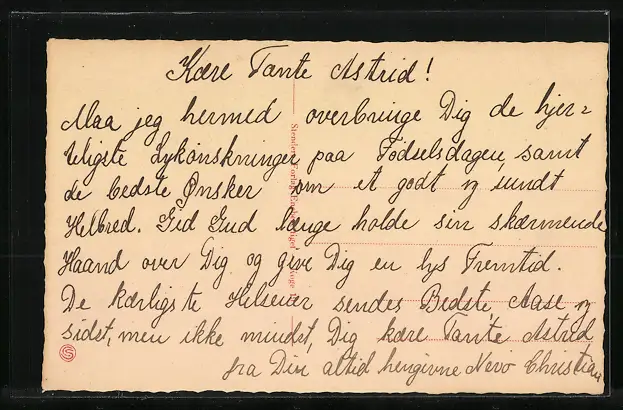 Kære Tante Astrid!
Maa jeg hermed overbringe Dig de hjer=
teligste Lykønskninger paa Fødselsdagen, samt
de bedste Ønsker om et godt og sundt
Helbred. Gid Gud længe holde sin skærmende
Haand over Dig og give Dig en lys Fremtid.
De kærligste Hilsener sendes Bedste, Aase og
sidst, men ikke mindst, Dig kære Tante Astrid
fra Din altid hengivne Nevø Christian
Stenders Forlag